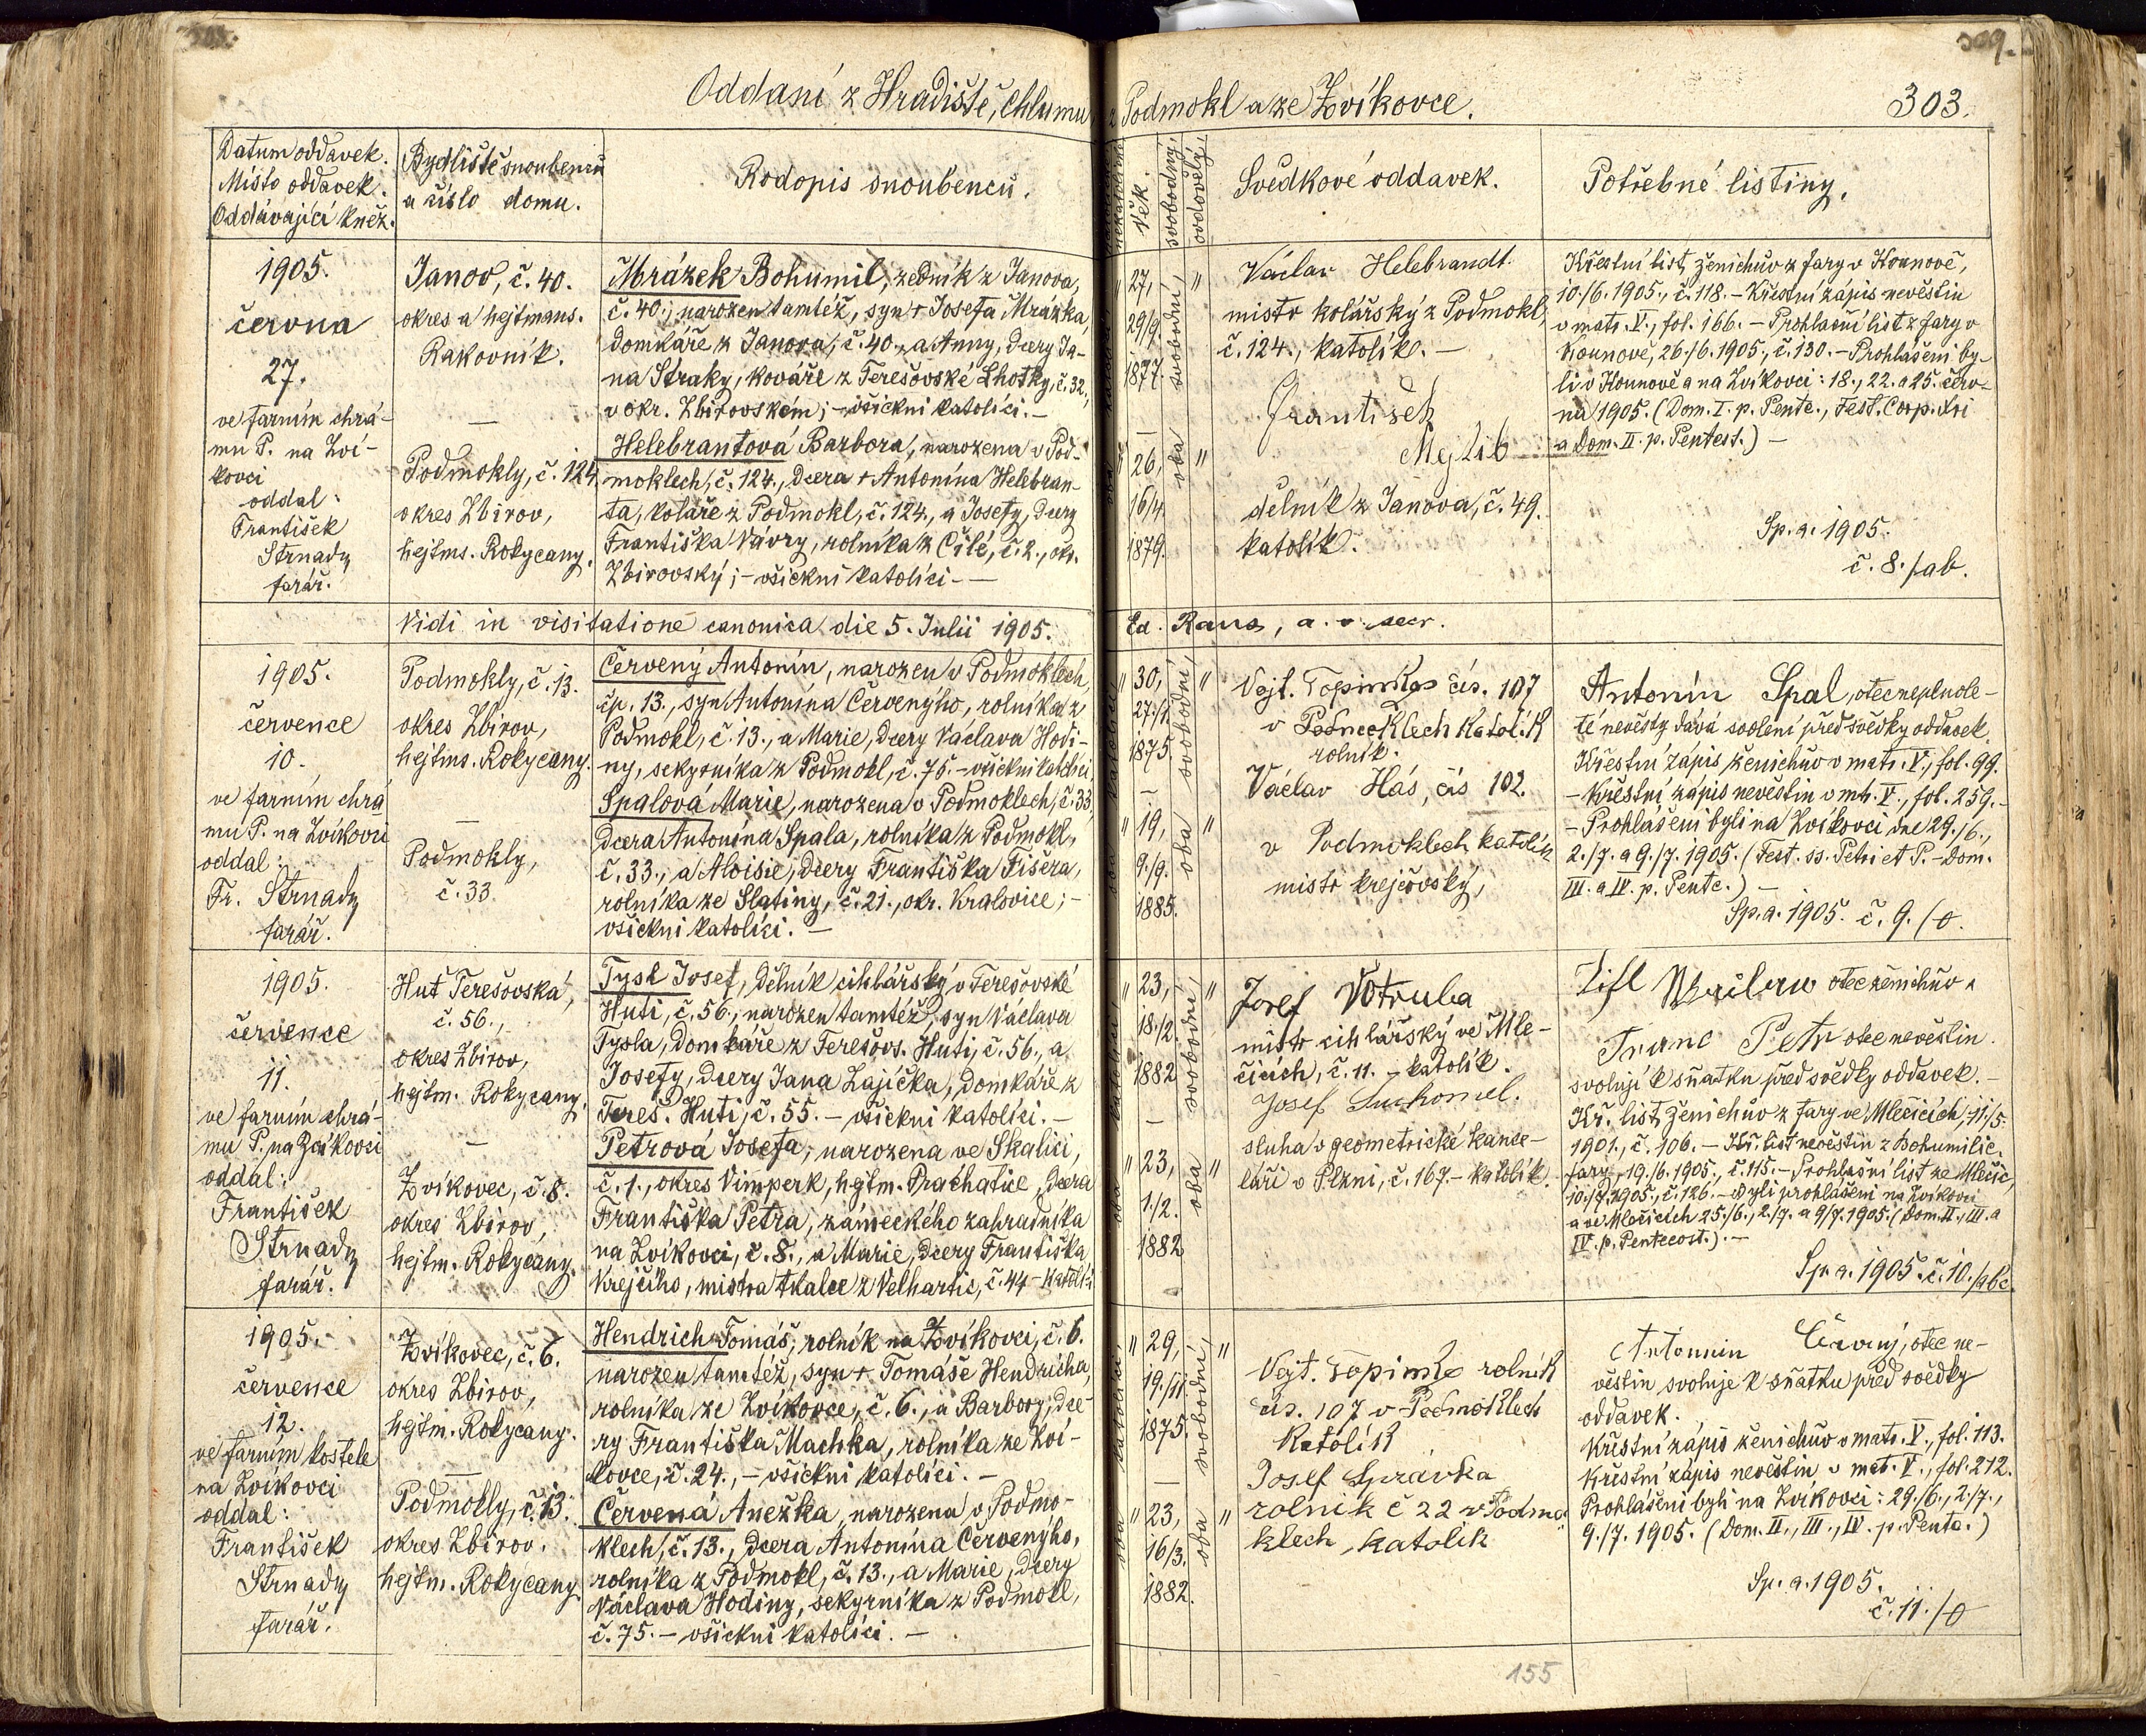 309.
Oddaní z Hradiště, Chlumu, z Podmokl a ze Zvíkovce.
303.
Datum oddavek.
Místo oddavek.
Oddávající kněz.
Bydliště snoubenců
a číslo domu.
Rodopis snoubenců.
Věk.
svobodný
ovdovělý
Svědkové oddavek.
Potřebné listiny.
1905.
června
27.
ve farním chrá-
mu P. na Zví-
kovci
oddal:
František
Strnady
farář.
Janov, č. 40.
okres a hejtmans.
Rakovník.
—
Podmokly, č. 124.
okres Zbirov,
hejtms. Rokycany.
Mrázek Bohumil, zedník z Janova,
č. 40., narozen tamtéž, syn + Josefa Mrázka,
domkáře z Janova, č. 40., a Anny, dcery Ja-
na Straky, kováře z Terešovské Lhotky, č. 32.,
v okr. Zbirovském; – všickni katolíci. –
Helebrantová Barbora, narozena v Pod-
moklech, č. 124., dcera + Antonína Helebran-
ta, koláře z Podmokl, č. 124., a Josefy, dcery
Františka Vávry, rolníka z Čilé, č. 2., okr.
Zbirovský; – všickni katolíci. —
27,
29/9.
1877.
—
26,
16/4.
1879.
oba svobodní
Václav Helebrandt
mistr kolářský z Podmokl,
č. 124., katolík. –
František
Mejlib
dělník z Janova, č. 49.
katolík.
Křestní list ženichův z fary v Kounově,
10./6. 1905., č. 118. – Křestní zápis nevěstin
v matr. V., fol. 166. – Prohlašní list z fary v
Kounově, 26./6. 1905., č. 130. – Prohlášeni by-
li v Kounově a na Zvíkovci: 18., 22. a 25. červ-
na 1905. (Dom. I. p. Pente., Fest. Corp. Xri
a Dom. II. p. Pentest.) –
Sp. a. 1905.
č. 8./ab.
Vidi in visitatione canonica die 5. Julii 1905.
1905.
července
10.
ve farním chrá
mu P. na Zvíkovci
oddal:
Fr. Strnady
farář.
Podmokly, č. 13.
okres Zbirov,
hejtms. Rokycany.
—
Podmokly,
č. 33.
Červený Antonín, narozen v Podmoklech,
čp. 13., syn Antonína Červenýho, rolníka z
Podmokl, č. 13., a Marie, dcery Václava Hodi-
ny, sekyrníka z Podmokl, č. 75. – všickni katolíci.
Spalová Marie, narozena v Podmoklech, č. 33,
dcera Antonína Spala, rolníka z Podmokl,
č. 33., a Aloisie, dcery Františka Fišera,
rolníka ze Slatiny, č. 21., okr. Kralovice; –
všickni katolíci. –
30,
1875.
—
19,
9./9.
1885.
oba svobodní
Vojt. Topinka čís. 107
v Podmoklech Katolík
rolník.
Václav Hás, čís 102.
v Podmoklech katolík
mistr krejčovský,
Antonín Spal, otec neplnole-
té nevěsty dává svolení před svědky oddavek.
Křestní zápis ženichův v matr. V., fol. 99.
– Křestní zápis nevěstin v mtr. V., fol. 259. –
– Prohlášeni byli na Zvíkovci dne 29./6.,
2./7. a 9./7. 1905. (Fest. ss. Petri et P. – Dom.
III. a IV. p. Pente.) –
Sp. a. 1905. č. 9./
1905.
července
11.
ve farním chrá-
mu P. na Zvíkovci
oddal:
František
Strnady
farář.
Huť Terešovská,
č. 56.,
okres Zbirov,
hejtm. Rokycany.
—
Zvíkovec, č. 8.
okres Zbirov,
hejtm. Rokycany.
Tysl Josef, dělník cihlářský v Terešovské
Huti, č. 56., narozen tamtéž, syn Václava
Tysla, domkáře z Terešovs. Huti, č. 56., a
Josefy, dcery Jana Zajíčka, domkáře z
Tereš. Huti, č. 55. – všickni katolíci. –
Petrová Josefa, narozena ve Skalici,
č. 1., okres Vimperk, hejtm. Prachatice, dcera
Františka Petra, zámeckého zahradníka
na Zvíkovci, č. 8., a Marie, dcery Františka
Krejčího, mistra tkalce z Velhartic, č. 44 –
23,
18./2
1882
—
23,
1./2.
1882
oba svobodní
Josef Votruba
mistr cihlářský ve Mle-
čicích, č. 11. – katolík.
Josef Suchomel.
sluha v geometrické kance-
láři v Plzni, č. 167. – katolík.
otec ženichův a
Franc Petr otec nevěstin.
svolují k sňatku před svědky oddavek. –
Kř. list ženichův z fary ve Mlečicích, 11./5.
1901., č. 106. – Kř. list nevěstin z Bohumilic.
fary, 19./6. 1905., č. 115. – Prohlašní list ze Mlečic,
10./7. 1905., č. 126. – Byli prohlášeni na Zvíkovci
a ve Mlečicích 25./6., 2./7. a 9/7. 1905. (Dom. II., III. a
IV. p. Pentecost.). –
Sp. a. 1905. č. 10./abc.
1905.
července
12.
ve farním kostele
na Zvíkovci
oddal:
František
Strnady
farář.
Zvíkovec, č. 6.
okres Zbirov,
hejtm. Rokycany.
—
Podmokly, č. 13.
okres Zbirov.
hejtm. Rokycany.
Hendrich Tomáš, rolník na Zvíkovci, č. 6.
narozen tamtéž, syn + Tomáše Hendricha,
rolníka ze Zvíkovce, č. 6., a Barbory, dce-
ry Františka Machka, rolníka ze Zví-
kovce, č. 24., – všickni katolíci. –
Červená Anežka, narozena v Podmo-
klech, č. 13., dcera Antonína Červenýho,
rolníka z Podmokl, č. 13., a Marie, dcery
Václava Hodiny, sekyrníka z Podmokl,
č. 75. – všickni katolíci. –
29,
19./11.
1875.
—
23,
16/3.
1882.
oba svobodní
Vojt. Topinka rolník
čís. 107 v Podmoklech
Katolík
Josef Správka
rolník č 22 v Podmo
klech, katolík
Antonín Červený, otec ne-
věstin svoluje k sňatku před svědky
oddavek.
Křestní zápis ženichův v matr. V., fol. 113.
Křestní zápis nevěstin v mat. V., fol. 212.
Prohlášeni byli na Zvíkovci: 29./6., 2./7.,
9./7. 1905. (Dom. II., III., IV. p. Pente.)
Sp. a. 1905.
č. 11./
155